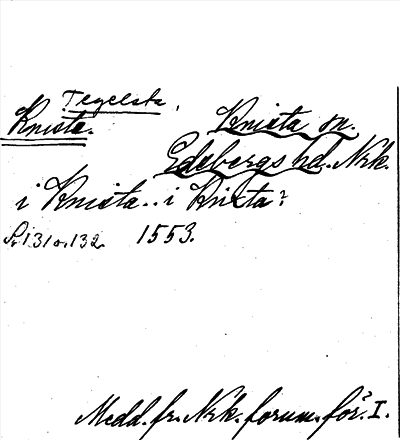 Tegelsta,
Knista. Knista sn.
Edsbergs hd. Nrk.
i Knista.. i Knixta?
S. 131 o. 132 1553.
Medd. fr. Nrk. fornm.för. I.